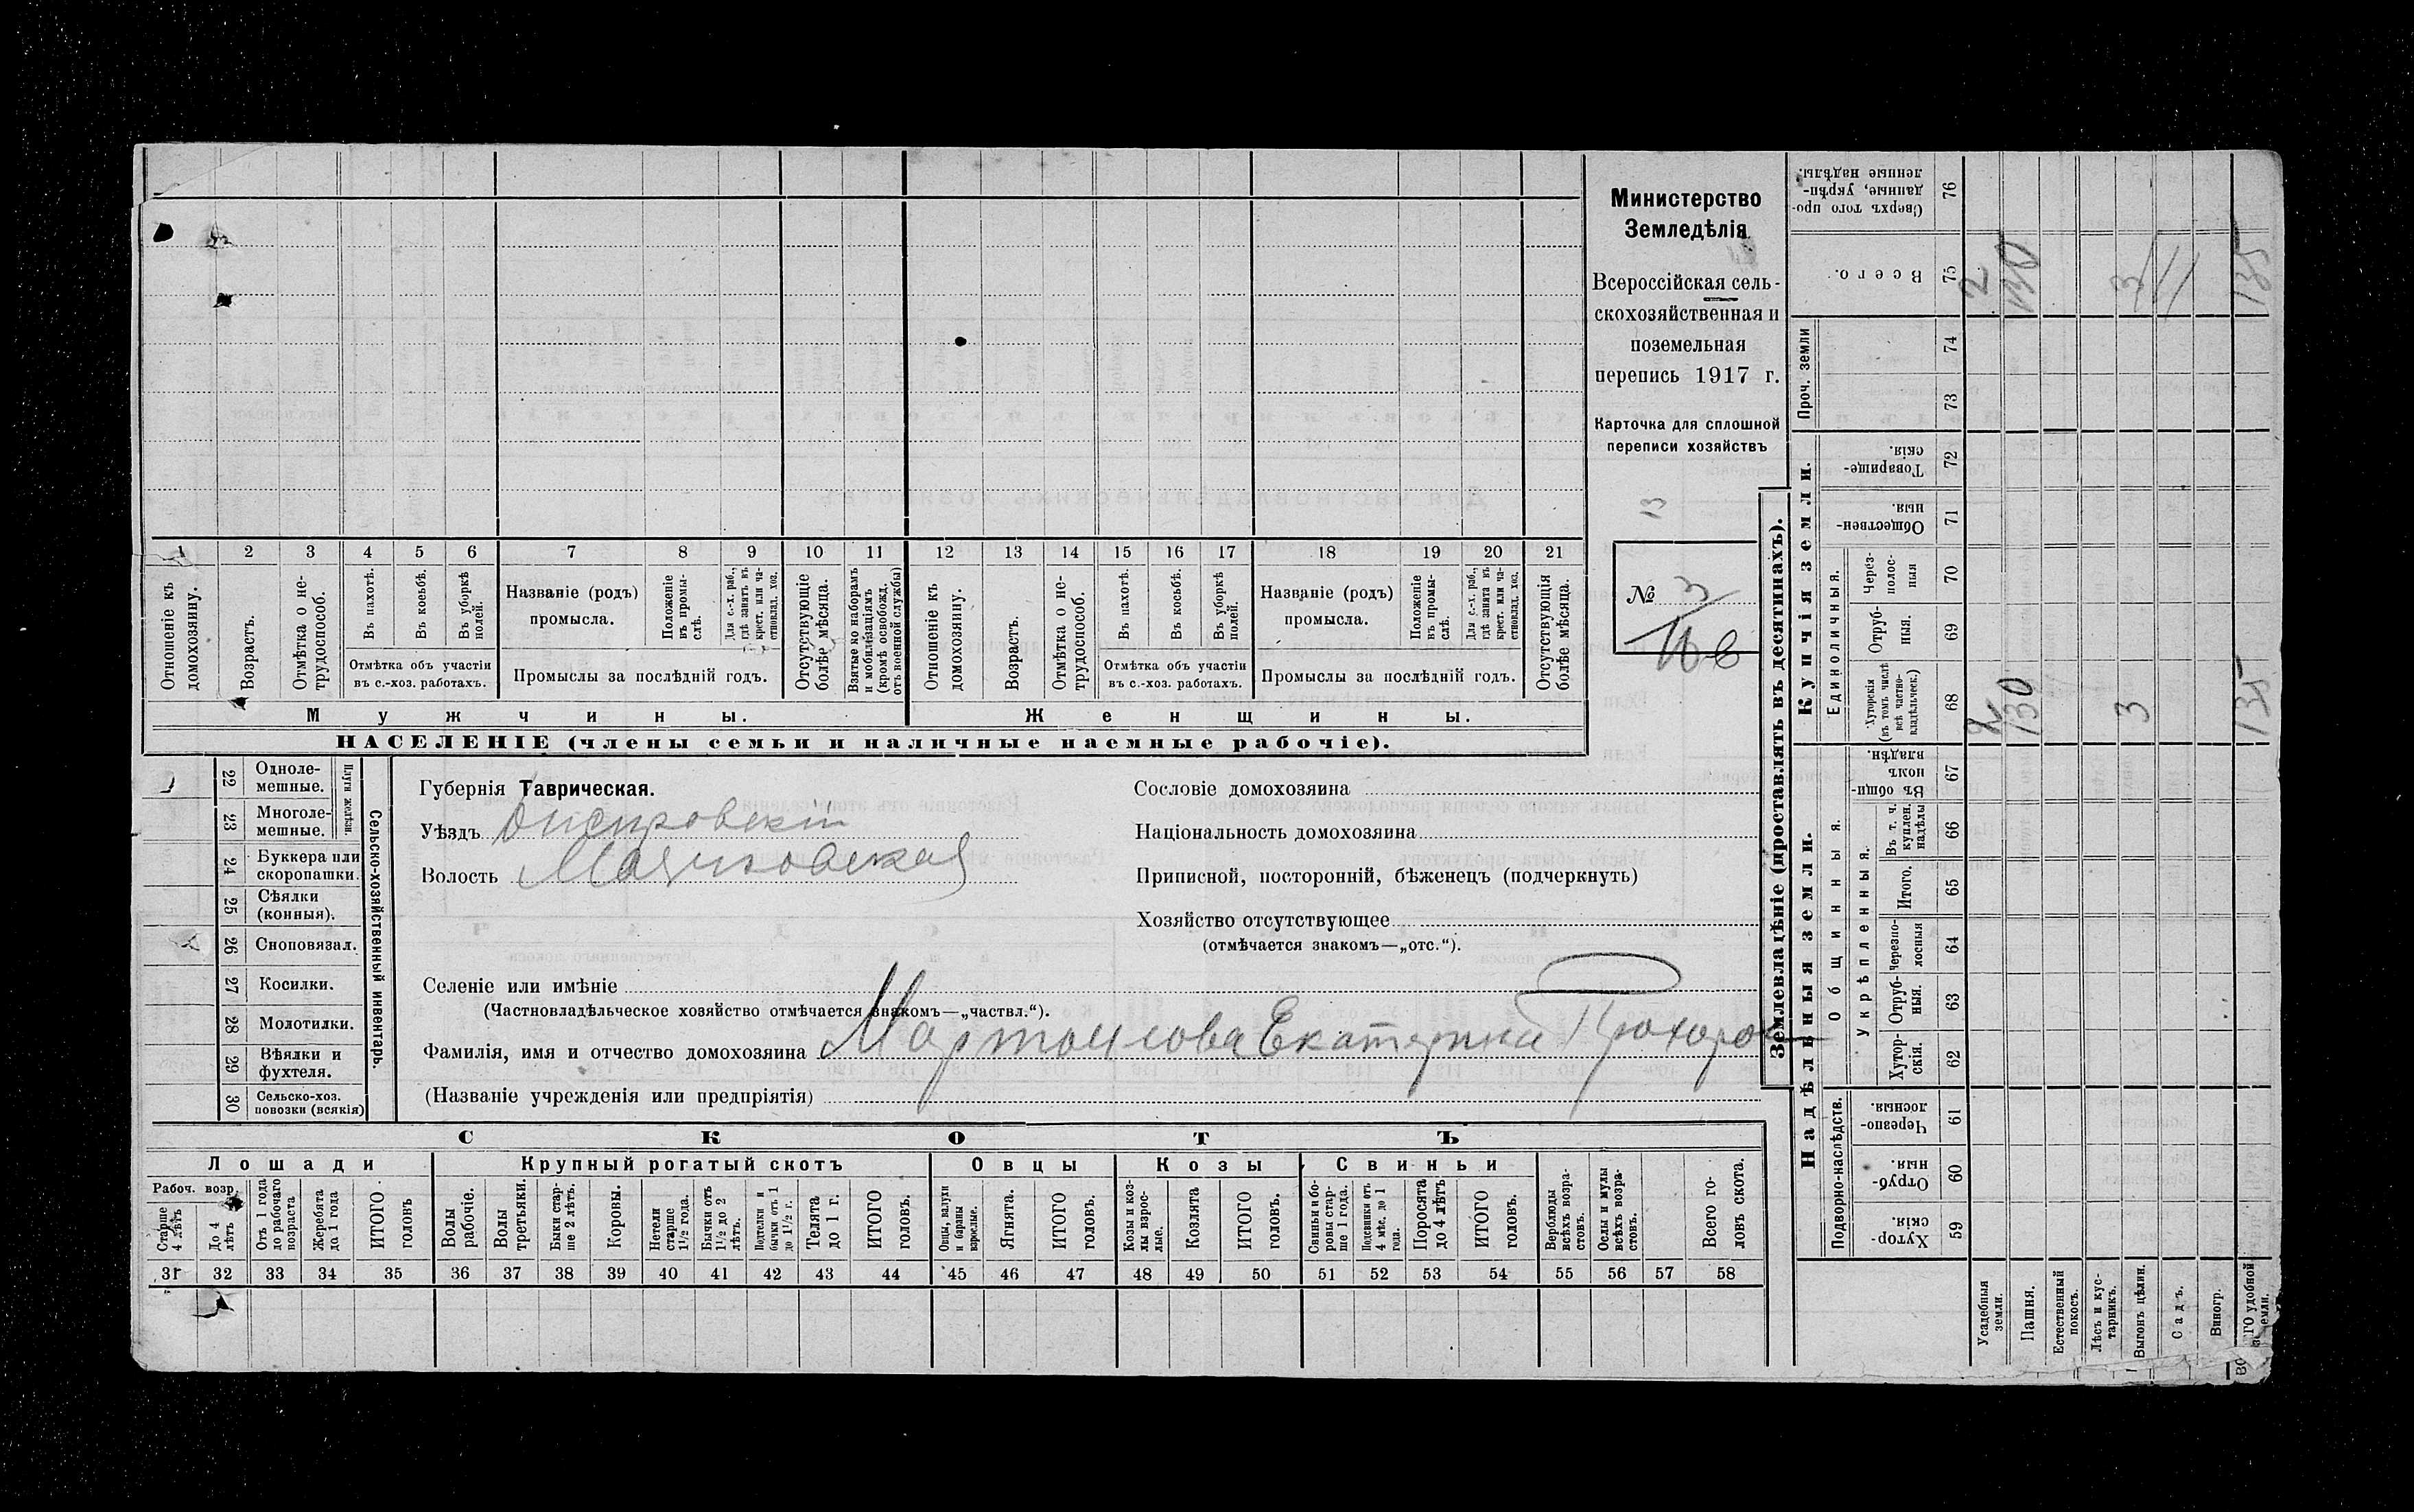 Министерство
Земледѣлія
Всероссійская сель-
скохозяйственная и
поземельная
перепись 1917 г.
Карточка для сплошной
переписи хозяйствъ
13
№ 3
1 2 3 4 5 6 7 8 9 10 11 12 13 14 15 16 17 18 19 20 21
Отношеніе къ домохозяину.
Возрастъ.
Отмѣтка о не-трудоспособ.
Въ пахотѣ.
Въ косьбѣ.
Въ уборкѣ полей.
Отмѣтка объ участіи
въ с.-хоз. работахъ.
Названіе (родъ)
промысла.
Положеніе въ промы-слѣ.
Для с.-х. раб., гдѣ занятъ въ крест. или ча-стновлад. хоз.
Промыслы за послѣдній годъ.
Отсутствующіе болѣе мѣсяца.
Взятые по наборамъ и мобилизаціямъ (кромѣ освобожд. отъ военной службы)
Отношеніе къ домохозяину.
Возрастъ.
Отмѣтка о не-трудоспособ.
Въ пахотѣ.
Въ косьбѣ.
Въ уборкѣ полей.
Отмѣтка объ участіи
въ с.-хоз. работахъ.
Названіе (родъ)
промысла.
Положеніе въ промы-слѣ.
Для с.-х. раб., гдѣ занята въ крест. или ча-стновлад. хоз.
Промыслы за послѣдній годъ.
Отсутствующія болѣе мѣсяца.
Мужчины.
Женщины.
НАСЕЛЕНІЕ (члены семьи и наличные наемные рабочіе).
22 Одноле-мешные.
23 Многоле-мешные.
Плуги желѣзн.
24 Буккера или скоропашки.
25 Сѣялки (конныя).
26 Сноповязал.
27 Косилки.
28 Молотилки.
29 Вѣялки и фухтеля.
30 Сельско-хоз. повозки (всякія)
Сельско-хозяйственный инвентарь.
Губернія Таврическая.
Уѣздъ Днепровскій
Волость Маячковская
Селеніе или имѣніе
(Частновладѣльческое хозяйство отмѣчается знакомъ—„частвл.“).
Фамилія, имя и отчество домохозяина Екатерина
(Названіе учрежденія или предпріятія)
Сословіе домохозяина
Національность домохозяина
Приписной, посторонній, бѣженецъ (подчеркнуть)
Хозяйство отсутствующее
(отмѣчается знакомъ—„отс.“).
СКОТЪ
Лошади
Крупный рогатый скотъ
Овцы
Козы
Свиньи
Рабоч. возр.
Старше 4 лѣтъ
До 4 лѣтъ
Отъ 1 года до рабочаго возраста
Жеребята до 1 года
ИТОГО головъ
Волы рабочіе.
Волы третьяки.
Быки стар-ше 2 лѣтъ.
Коровы.
Нетели старше 1½ года.
Бычки отъ 1½ до 2 лѣтъ.
Подтелки и бычки отъ 1 до 1½ г.
Телята до 1 г.
ИТОГО головъ.
Овцы, валухи и бараны взрослые.
Ягнята.
ИТОГО головъ.
Козы и коз-лы взрос-лые.
Козлята
ИТОГО головъ.
Свиньи и бо-ровы стар-ше 1 года.
Подсвинки отъ 4 мѣс. до 1 года.
Поросята до 4 лѣтъ
ИТОГО головъ.
Верблюды всѣхъ возра-стовъ.
Ослы и мулы всѣхъ возра-стовъ.
Всего го-ловъ скота.
31 32 33 34 35 36 37 38 39 40 41 42 43 44 45 46 47 48 49 50 51 52 53 54 55 56 57 58
Землевладѣніе (проставлять въ десятинахъ).
Надѣльныя земли.
Купчія земли.
Проч. земли
Подворно-наслѣдств.
Общинныя.
Укрѣпленныя.
Единоличныя.
Сверхъ того про-данные, укрѣп-ленные надѣлы. 76
Всего. 75 2 130 3 135
74
73
Товарище-скія. 72
Обществен-ныя. 71
Через-полос-ныя 70
Отруб-ныя. 69
Хуторскія (въ томъ числѣ всѣ частно-владѣльческ.) 68 2 130 3 135
Въ общин-номъ владѣн. 67
Въ т. ч. куплен. надѣлы 66
Итого. 65
Черезпо-лосныя 64
Отруб-ныя. 63
Хутор-скія. 62
Черезпо-лосныя. 61
Отруб-ныя. 60
Хутор-скія. 59
Усадебныя земли.
Пашня.
Естественный покосъ.
Лѣсъ и кус-тарникъ.
Выгонъ цѣлин.
Садъ.
Виногр.